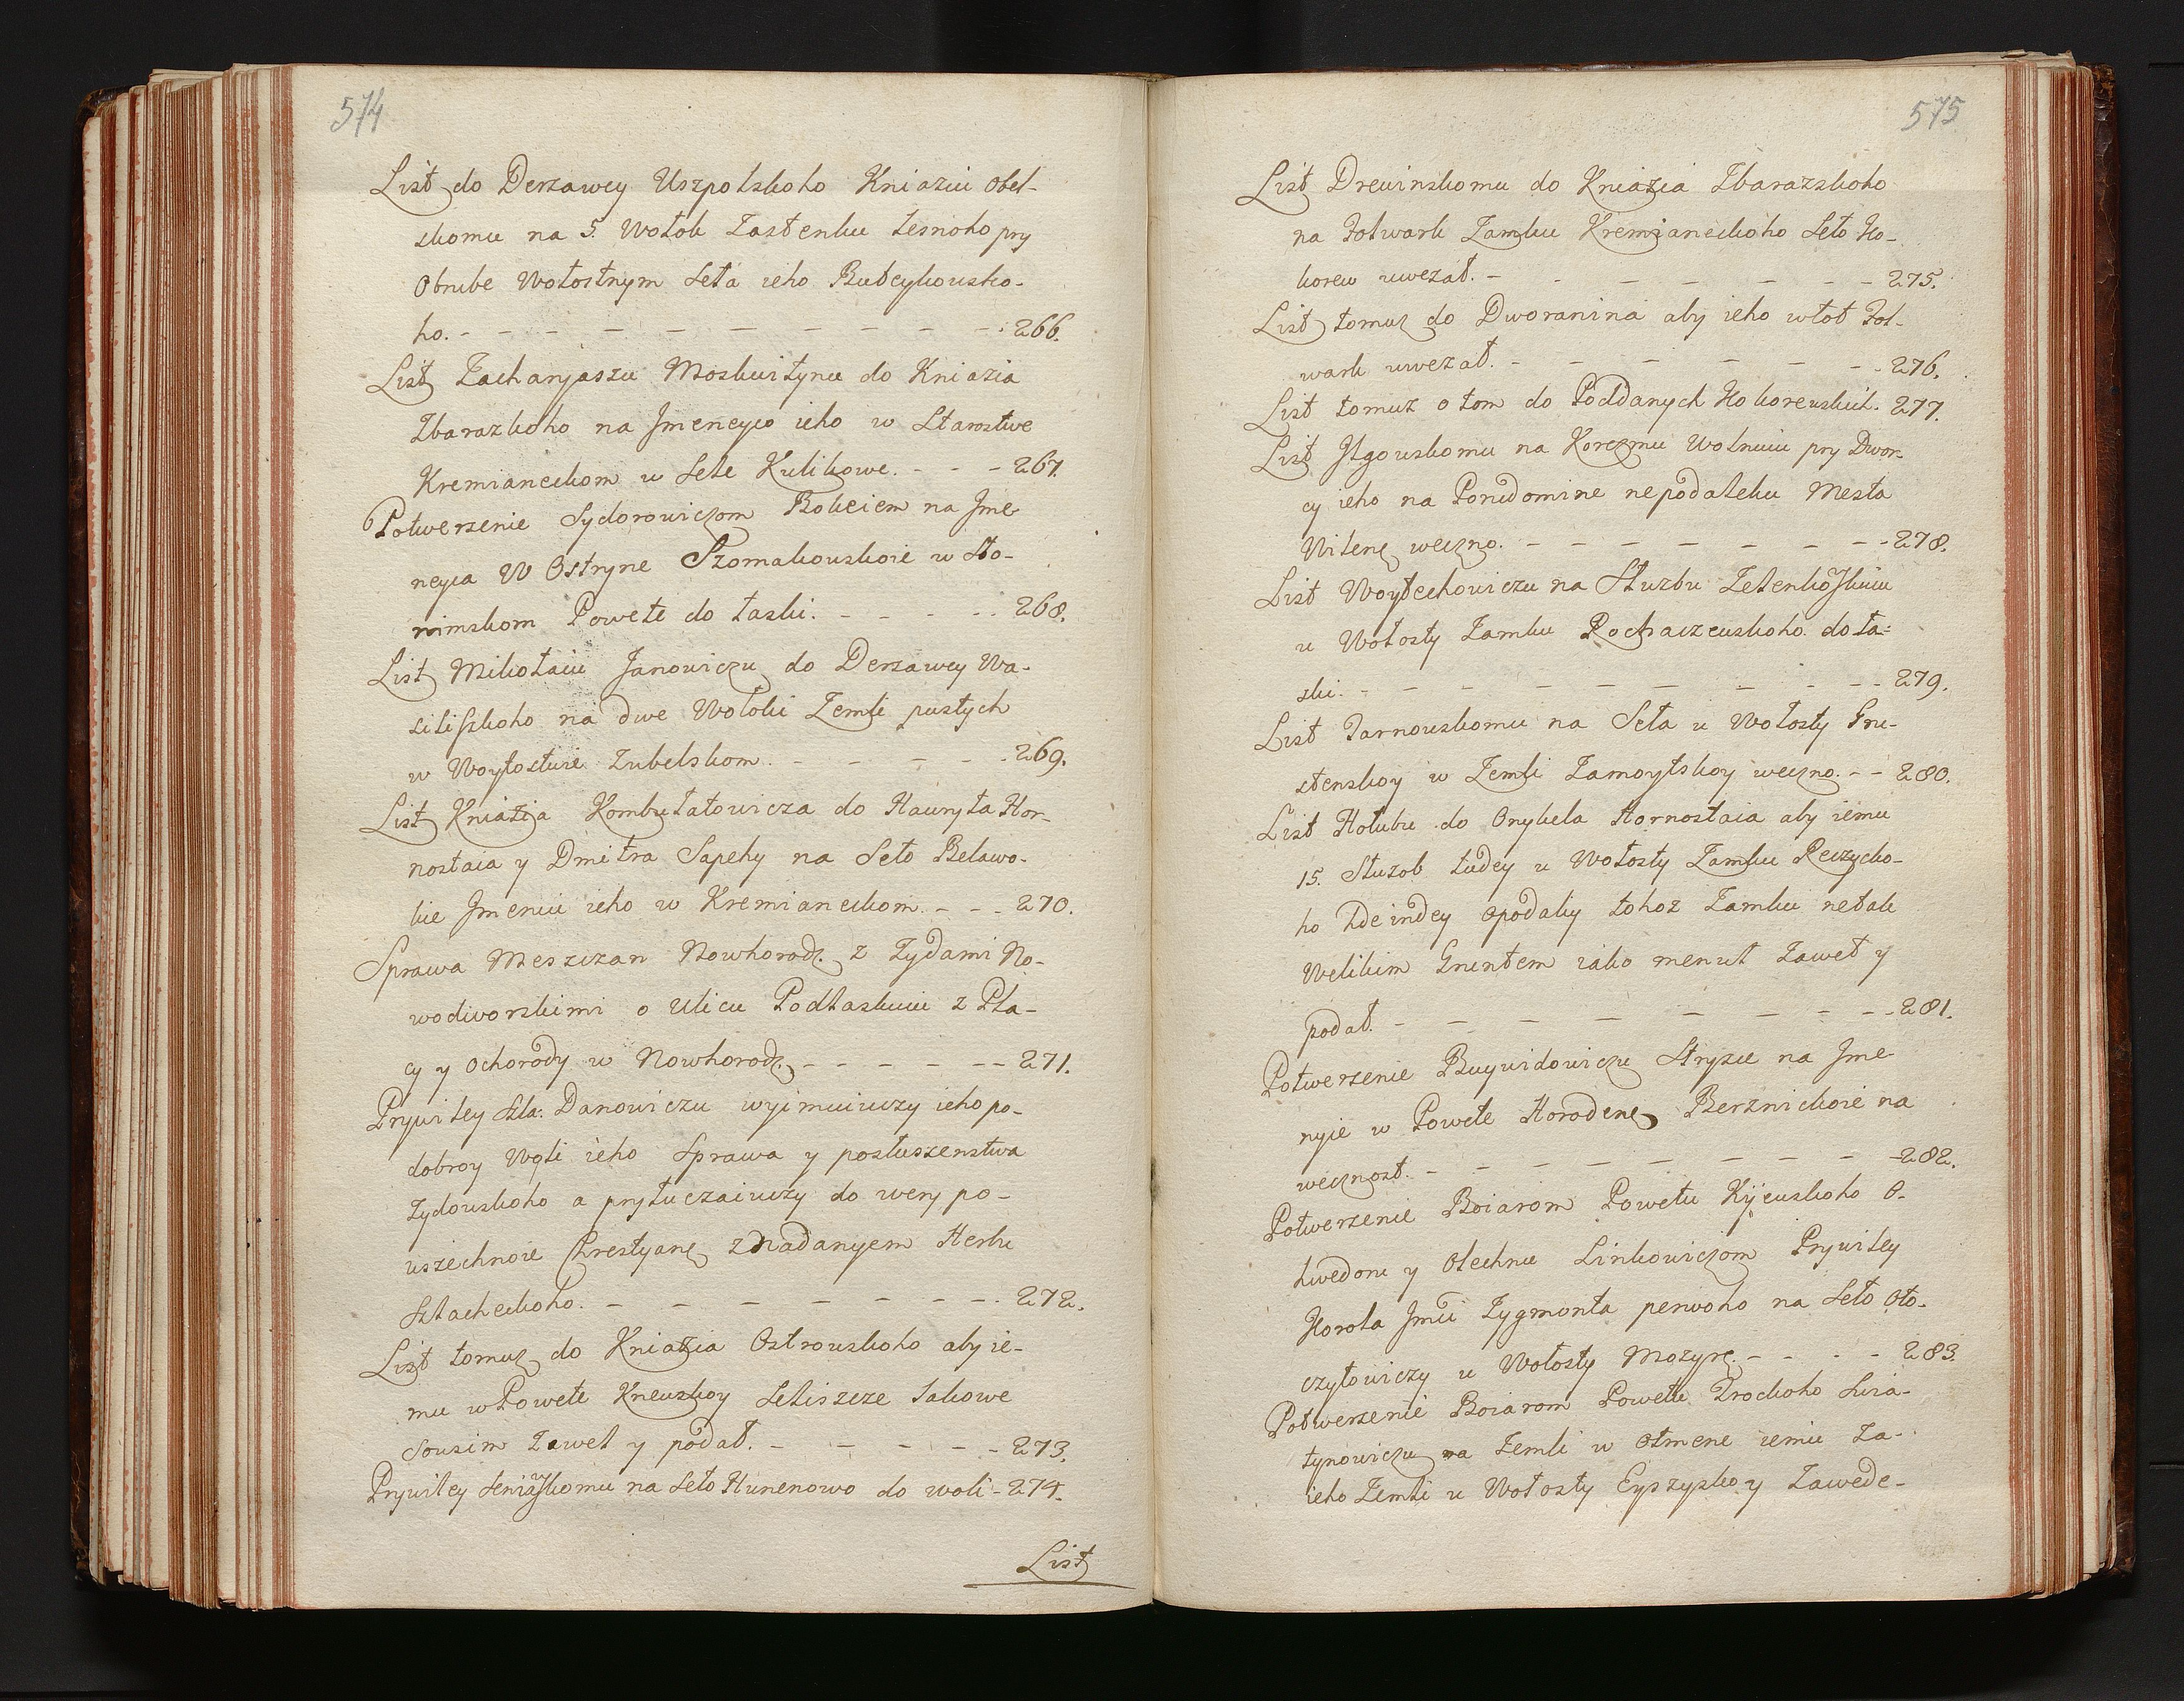 574
List do Derzawcy Uszpolskoho Kniaziu Obol-
skomu na 5. Wołok Zastenku lesnoho pry
Obrube Wołostnym Seła ieho Butcykowsko-
ho. - - - - - - - - - - 266.
List Zacharyaszu Moskwitynu do Kniazia
Zbarazkoho na Jmeneyco ieho w Starostwe
Kremianeckom w Sele Kulikowe. - - - 267.
Potwerzenie Sydorowiczom Bokeiem na Jme
neyca W Ostryne Szomakowskoie w Sło-
nimskom Powete do łaski. - - - - - 268.
List Mikołaiu Janowiczu do Derzawcy Wa-
siliszkoho na dwe Wołoki Zemli pustych
w Woytostwie Zubelskom. - - - - - 269.
List Kniazia Kombułatowicza do Hawryła Hor-
nostaia y Dmitra Sapehy na Seło Beławo-
kie Jmeniu ieho w Kremianeckom. - - - 270.
Sprawa Meszczan Nowhorodz. z Żydami No-
wodworskimi o Ulicu Podłaskuiu z Pła-
cy y Ochorody w Nowhorodz. - - - - - - 271.
Prywiley Szla: Danowiczu wyimuiuczy ieho po-
dobroy Woli ieho Sprawa y posłuszenstwa
Żydowskoho a pryłuczaiuczy do wery po-
wszechnoie Chrestyanz. z Nadanyem Herbu
Szlacheckoho. - - - - - - - - 272.
List tomuż do Kniazia Ostrowskoho aby ie-
mu w Powete Knewskoy Seliszcze Sakowe
Sousim Zawel y podał. - - - - - - 273.
Prywiley Seniażskomu na Seło Hunenowo do woli - 274.
List
575
List Drewinskomu do Kniazia Zbarazskoho
na Folwark Zamku Kremianeckoho Seło Ko-
korew uwezał. - - - - - - - - 275.
List tomuż do Dworanina aby ieho wtot Fol-
wark uwezał. - - - - - - - 276.
List tomuz o tom do Poddanych Kokorewskich. 277.
List Jlgowskomu na Korczmu Wolnuiu pry Dwor-
cy ieho na Ponudomine nepodaleku Mesta
Wilenz. weczno. - - - - - - - - 278.
List Woytechowiczu na Służbu Zelenkożskuiu
u Wołosty Zamku Rochaczewskoho do ła-
ski. - - - - - - - - - - 279.
List Tarnowskomu na Seła u Wołosty Fru-
stenskoy w Zemli Zamoytskoy weczno. - - 280.
List Hołubu do Onykela Hornostaia aby iemu
15. Słuzob ludey u Wołosty Zamku Reczycko-
ho hdeindey opodaky tohoz Zamku netak
Welikim Gruntem iako menut Zaweł y
podał. - - - - - - - - - 281.
Potwerzenie Buywidowiczu Stryze na Jme
nyie w Powete Horodenz. Berznickoie na
wecznost. - - - - - - - - - 282.
Potwerzenie Boiarom Powetu Kijewskoho O-
chwedonu y Olechnu Sinkowiczom Prywiley
Korola Jmći Zygmonta perwoho na Seło Oło-
czyłowiczy u Wołosty Mozyrz. - - - - - 283.
Potwerzenie Boiarom Powetu Trockoho Swia-
tynowiczu na Zemli w Ołmene iemu Za-
ieho Zemli u Wołosty Eyszyskoy Zawede-